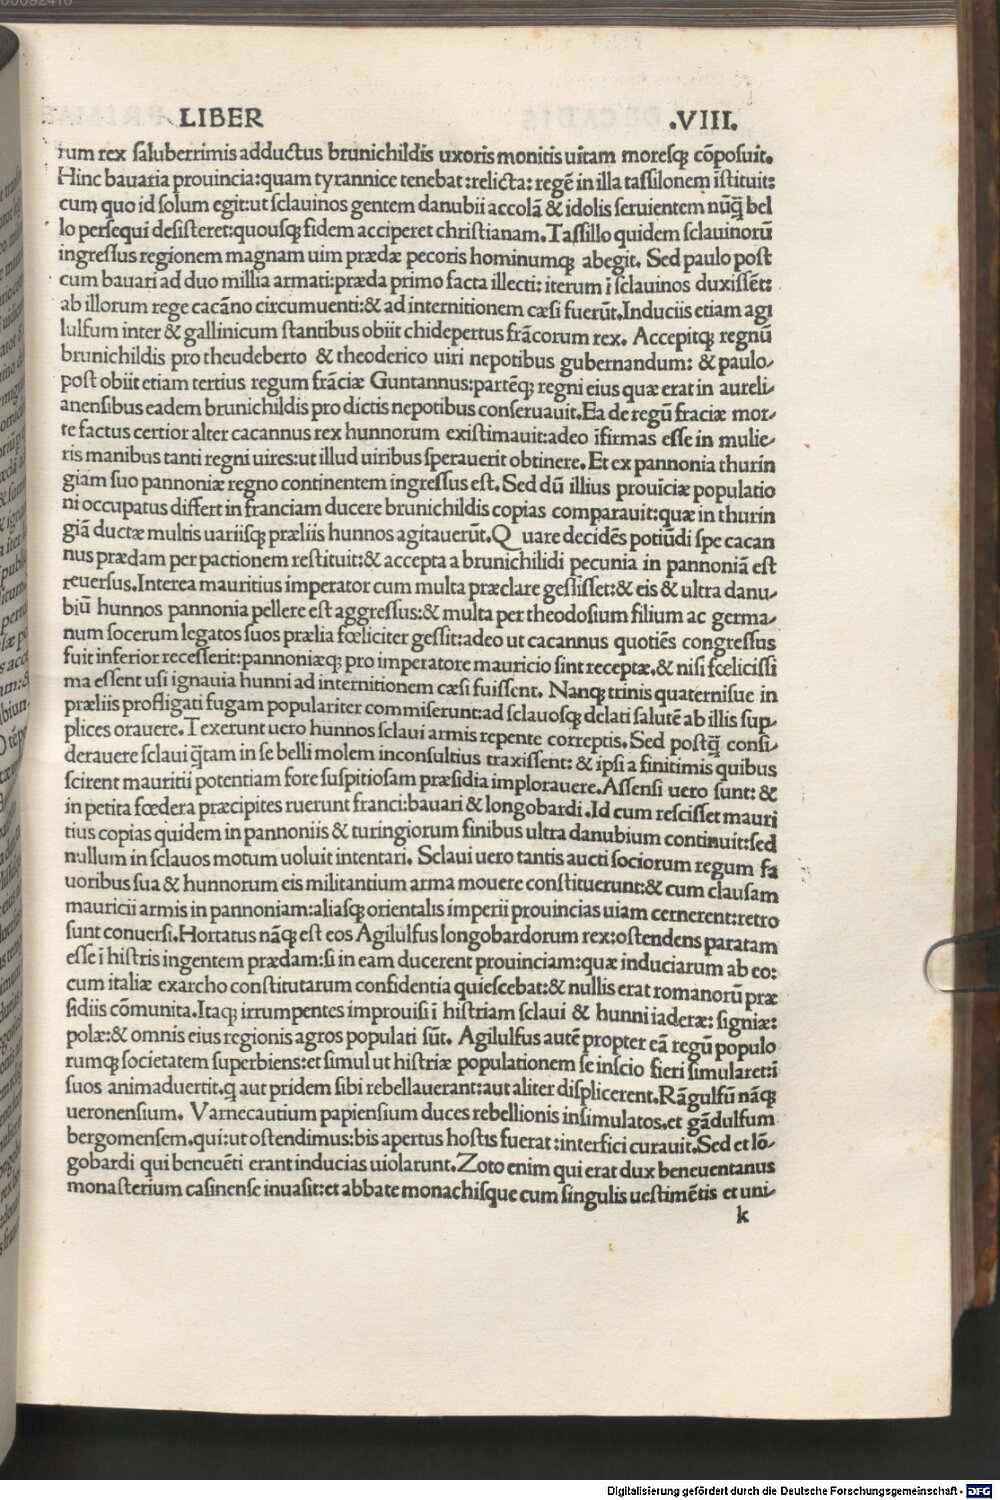 LIBER .VIII.
rum rex saluberrimis adductus brunichildis uxoris monitis uitam moresq; cōposuit.
Hinc bauaria prouincia:quam tyrannice tenebat:relicta: regē in illa tassilonem īstituit:
cum quo id solum egit:ut sclauinos gentem danubii accolā & idolis seruientem nūq̄ bel
lo persequi desisteret:quousq; fidem acciperet christianam. Tassillo quidem sclauinorū
ingressus regionem magnam uim prædæ pecoris hominumq; abegit. Sed paulo post
cum bauari ad duo millia armati:præda primo facta illecti: iterum ī sclauinos duxissēt:
ab illorum rege cacāno circumuenti:& ad internitionem cæsi fuerūt.Induciis etiam agi
lulfum inter & gallinicum stantibus obiit chidepertus frācorum rex. Accepitq; regnū
brunichildis pro theudeberto & theoderico uiri nepotibus gubernandum: & paulo-
post obiit etiam tertius regum frāciæ Guntannus:partēq; regni eius quæ erat in aureli-
anensibus eadem brunichildis pro dictis nepotibus conseruauit.Ea de regū fraciæ mor-
te factus certior alter cacannus rex hunnorum existimauit:adeo īfirmas esse in mulie-
ris manibus tanti regni uires:ut illud uiribus sperauerit obtinere. Et ex pannonia thurin
giam suo pannoniæ regno continentem ingressus est. Sed dū illius prouīciæ populatio
ni occupatus differt in franciam ducere brunichildis copias comparauit:quæ in thurin
giā ductæ multis uariisq; præliis hunnos agitauerūt.Quare decidēs potiūdi spe cacan
nus prædam per pactionem restituit:& accepta a brunichilidi pecunia in pannoniā est
reuersus.Interea mauritius imperator cum multa præclare gessisset:& eis & ultra danu-
biū hunnos pannonia pellere est aggressus:& multa per theodosium filium ac germa-
num socerum legatos suos prælia fœliciter gessit:adeo ut cacannus quotiēs congressus
fuit inferior recesserit:pannoniæq; pro imperatore mauricio sint receptæ.& nisi fœlicissi
ma essent usi ignauia hunni ad internitionem cæsi fuissent. Nanq; trinis quaternisue in
præliis profligati fugam populariter commiserunt:ad sclauosq; delati salutē ab illis sup-
plices orauere. Texerunt uero hunnos sclaui armis repente correptis. Sed postq̄ consi-
derauere sclaui q̄tam in se belli molem inconsultius traxissent: & ipsi a finitimis quibus
scirent mauritii potentiam fore suspitiosam præsidia implorauere. Assensi uero sunt: &
in petita fœdera præcipites ruerunt franci:bauari & longobardi. Id cum rescisset mauri
tius copias quidem in pannoniis & turingiorum finibus ultra danubium continuit:sed
nullum in sclauos motum uoluit intentari. Sclaui uero tantis aucti sociorum regum fa
uoribus sua & hunnorum eis militantium arma mouere constituerunt:& cum clausam
mauricii armis in pannoniam:aliasq; orientalis imperii prouincias uiam cernerent:retro
sunt conuersi. Hortatus nāq; est eos Agilulfus longobardorum rex:ostendens paratam
esse ī histris ingentem prædam:si in eam ducerent prouinciam:quæ induciarum ab eo:
cum italiæ exarcho constitutarum confidentia quiescebat:& nullis erat romanorū præ
sidiis cōmunita.Itaq; irrumpentes improuisi ī histriam sclaui & hunni iaderæ: signiæ:
polæ:& omnis eius regionis agros populati sūt. Agilulfus autē propter eā regū populo
rumq; societatem superbiens:et simul ut histriæ populationem se inscio fieri simularet:ī
suos animaduertit.q aut pridem sibi rebellauerant:aut aliter displicerent.Rāgulfū nāq;
ueronensium. Varnecautium papiensium duces rebellionis insimulatos.et gādulfum
bergomensem.qui:ut ostendimus:bis apertus hostis fuerat:interfici curauit.Sed et lō-
gobardi qui beneuēti erant inducias uiolarunt.Zoto enim qui erat dux beneuentanus
monasterium casinense inuasit:et abbate monachisque cum singulis uestimētis et uni-
k
Digitalisierung gefördert durch die Deutsche Forschungsgemeinschaft - DFG